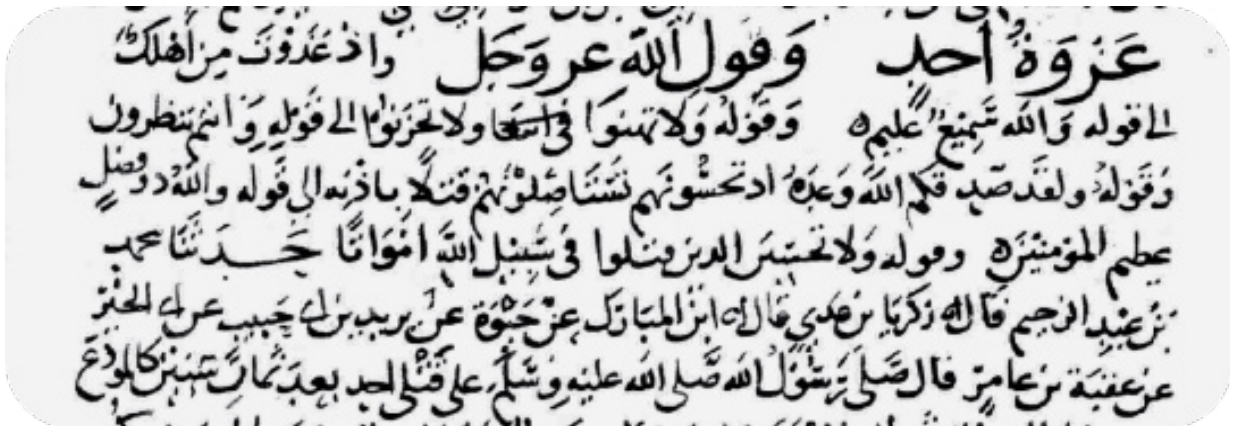 غزوة أحد وقول الله عز وجل واذ غدوت من أهلك
الى قوله والله سميع عليم وقوله ولا تهنوا ولا تحزنوا الى قوله وانتم تنظرون
وقوله ولقد صدقكم الله وعده اذ تحسونهم تستاصلونهم قتلا باذنه الى قوله والله ذو فضل
عظيم المؤمنين وقوله ولا تحسبن الذين قتلوا في سبيل الله امواتا حدثنا محمد
بن عبد الرحيم قال زكريا بن عدي قال ابن المبارك عن حيوة عن يزيد بن ابي حبيب عن ابي الخير
عن عقبة بن عامر قال صلى رسول الله صلى الله عليه وسلم على قتلى احد بعد ثمان سنين كالمودع